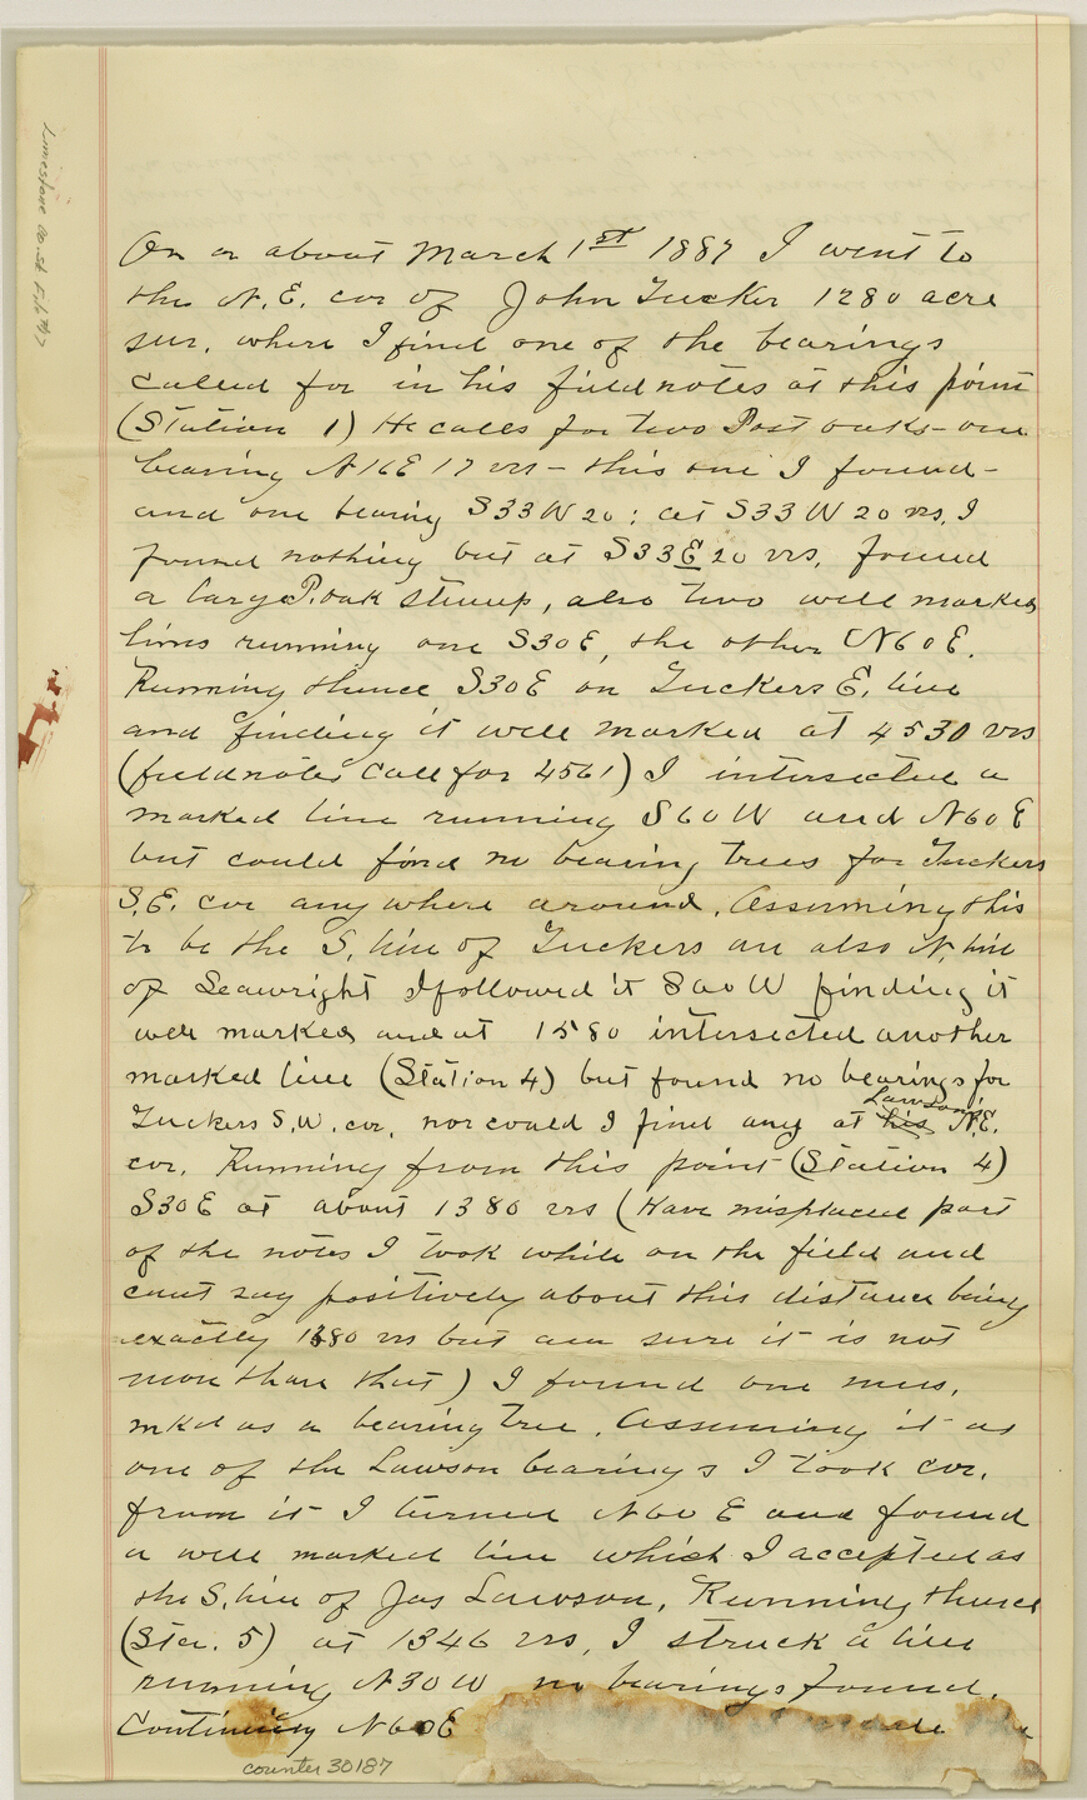 Limestone Co. Sk File #17
On or about March 1st 1887 I went to
the N.E. cor of John Tucker 1280 acre
sur. where I find one of the bearings
called for in his fieldnotes at this point
(Station 1) He calls for two Post oaks - one
bearing N16E 17 vrs - this one I found -
and one bearing S33W 20 : at S33W 20 vrs. I
found nothing but at S33E 20 vrs. found
a large P. oak stump, also two well marked
lines running one S30E, the other N60E.
Running thence S30E on Tuckers E. line
and finding it well marked at 4530 vrs
(fieldnotes call for 4561) I intersected a
marked line running S60W and N60E
but could find no bearing trees for Tuckers
S.E. cor any where around. Assuming this
to be the S. line of Tuckers an also N. line
of Seawright I followed it S60W finding it
well marked and at 1580 intersected another
marked line (Station 4) but found no bearings for
Tuckers S.W. cor. nor could I find any at his Lawson's N.E.
cor. Running from this point (Station 4)
S30E at about 1380 vrs (Have misplaced part
of the notes I took while on the field and
cant say positively about this distance being
exactly 1380 vrs but am sure it is not
more than that) I found one mes.
mkd as a bearing tree. Assuming it as
one of the Lawson bearings I took cor.
from it I turned N60E and found
a well marked line which I accepted as
the S. line of Jas Lawson, Running thence
(Sta. 5) at 1346 vrs, I struck a line
running N30W no bearings found.
Continuing N60E
counter 30187